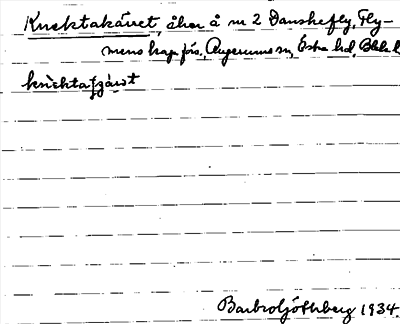 Knektakäret, åker å nr 2 Danskefly, Fly-
mens kap förs, Augerums sn, Östra hd, Blek. l.
knɛktaȥärət
Barbro Göthberg 1934.